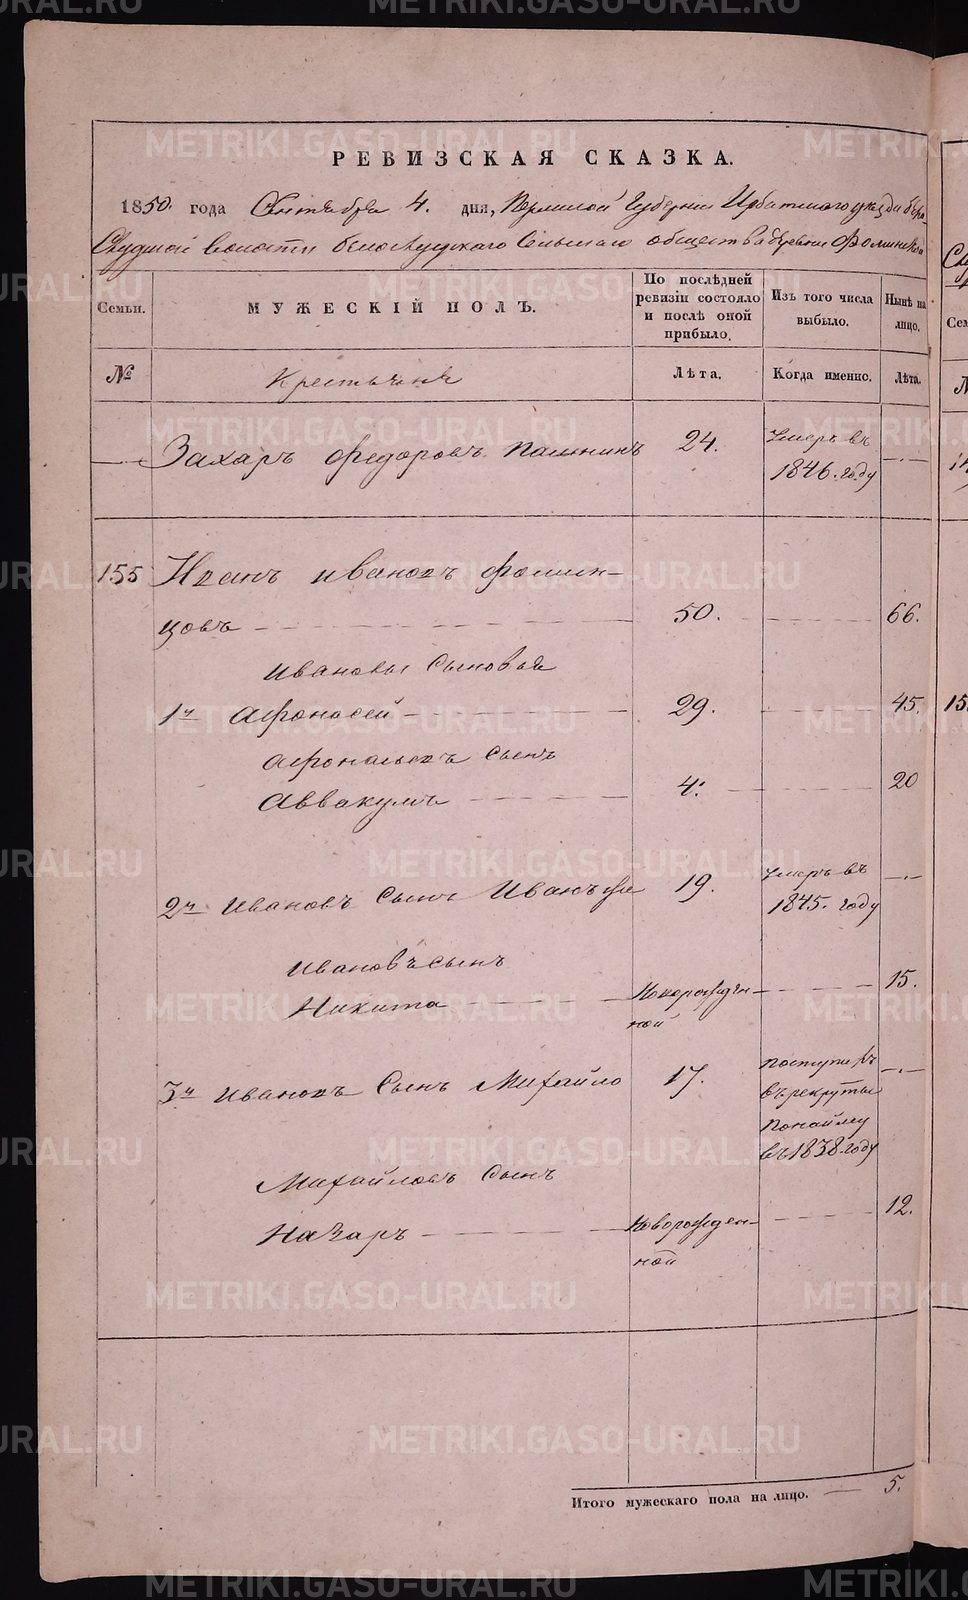 РЕВИЗСКАЯ СКАЗКА.
1850 года Сентября 4. дня, Пермской Губернии Ирбитского уезда Бело
Слудской волости Белослудского Сельскаго общества деревни Фоминской
Семьи.
МУЖЕСКІЙ ПОЛЪ.
По послѣдней ревизіи состояло и послѣ оной прибыло.
Изъ того числа выбыло.
Нынѣ на лицо.
№ Крестьяне Лѣта. Когда именно. Лѣта.
Захаръ Федоровъ 24. Умеръ въ
1846. году
155 Иванъ Ивановъ Фомин-
цовъ 50. 66.
Ивановы Сыновья
1й Афонасей 29. 45.
Афонасьевъ Сынъ
Аввакумъ 4. 20
2й Ивановъ Сынъ Иванъ же 19. Умеръ въ
1845. году
Ивановъ сынъ
Никита Новорожден- 15.
ной
3й Ивановъ Сынъ Михайло 17. поступилъ
въ рекруты
по найму
въ 1838. году
Михайловъ Сынъ
Назаръ Новорожден- 12.
ной
Итого мужескаго пола на лицо. 5.
METRIKI.GASO-URAL.RU